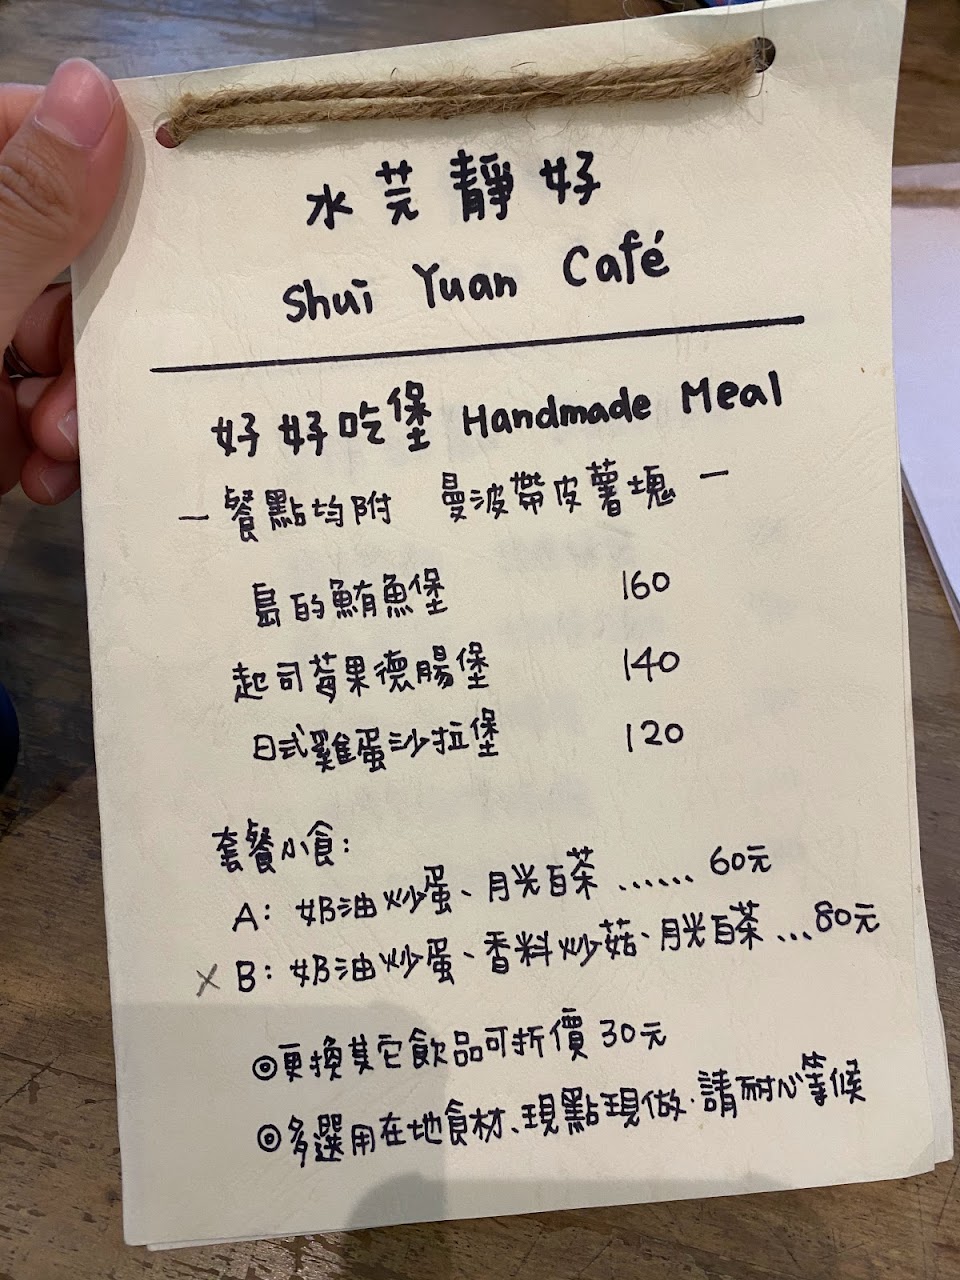 水芫靜好
Shui Yuan Café
好好吃堡 Handmade Meal
－餐點均附 曼波帶皮薯塊－
島的鮪魚堡 160
起司莓果德腸堡 140
日式雞蛋沙拉堡 120
套餐小食:
A: 奶油炒蛋、月光白茶 ...... 60元
× B: 奶油炒蛋、香料炒菇、月光白茶 ...80元
◎更換其它飲品可折價 30元
◎多選用在地食材、現點現做.請耐心等候